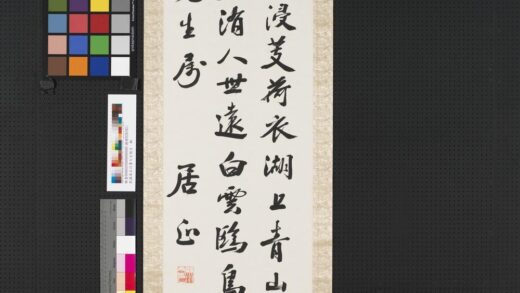 浸芰荷衣湖上青山
渚人世遠白雲鷗鳥
先生屬
居正